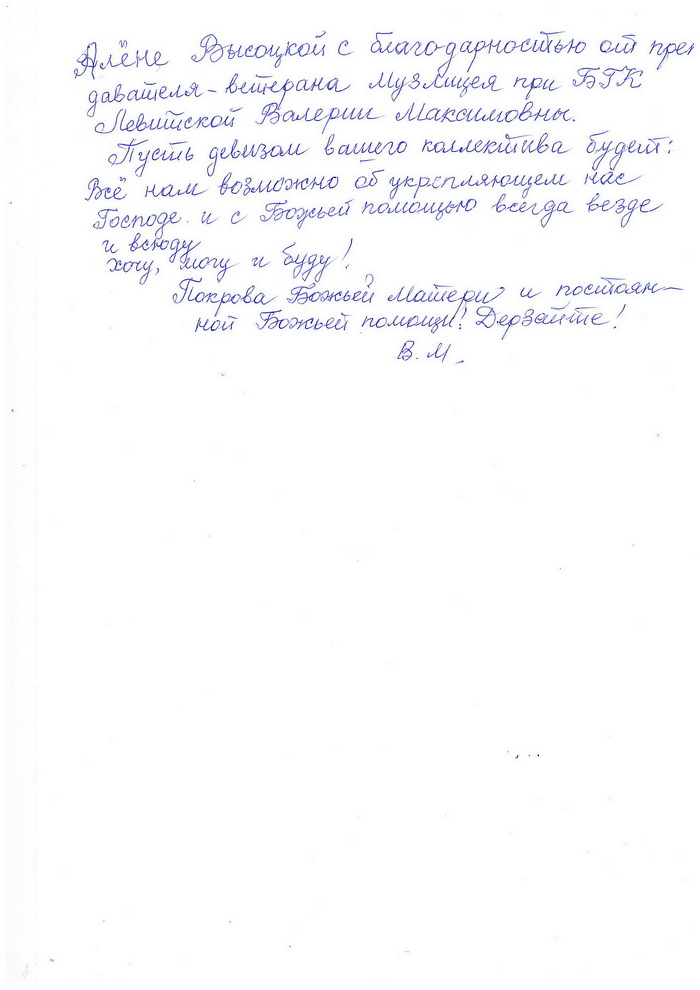 Алёне Высоцкой с благодарностью от преп
давателя-ветерана Музлицея при БГК
Левитской Валерии Максимовны.
Пусть девизом вашего коллектива будет:
Всё нам возможно об укрепляющем нас
Господе. и с Божьей помощью всегда везде
и всюду
хочу, могу и буду!
Покрова Божьей Матери и постоян-
ной Божьей помощи! Дерзайте!
В.М.